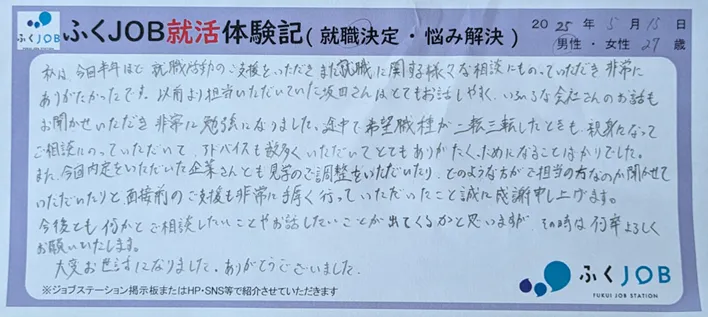 ふくJOB
ふくJOB就活体験記(就職決定・悩み解決)
2025年5月15日
男性・女性 27歳
私は今回半年ほど就職活動のご支援をいただきまた就職に関する様々な相談にものっていただき非常に
ありがたかったです。以前より担当いただいていた坂田さんはとてもお話しやすく、いろいろな会社さんのお話も
お聞かせいただき非常に勉強になりました。途中で希望職種が二転三転したときも、親身になって
ご相談にのっていただいて、アドバイスも数多くいただいてとてもありがたく、ためになることばかりでした。
また、今回内定をいただいた企業さんとも見学の調整をいただいたり、どのような方がご担当の方なのか聞かせて
いただいたりと、面接前のご支援も非常に手厚く行っていただいたこと誠に感謝申し上げます。
今後とも何かとご相談したいことやお話したいことが出てくるかと思いますが、その時は何卒よろしく
お願いいたします。
大変お世話になりました。ありがとうございました。
※ジョブステーション掲示板またはHP・SNS等で紹介させていただきます
ふくJOB
FUKUI JOB STATION